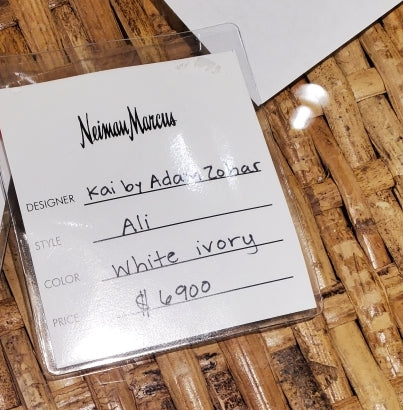 Neiman Marcus
DESIGNER Kai by Adam Zohar
STYLE Ali
COLOR White ivory
PRICE $ 6900